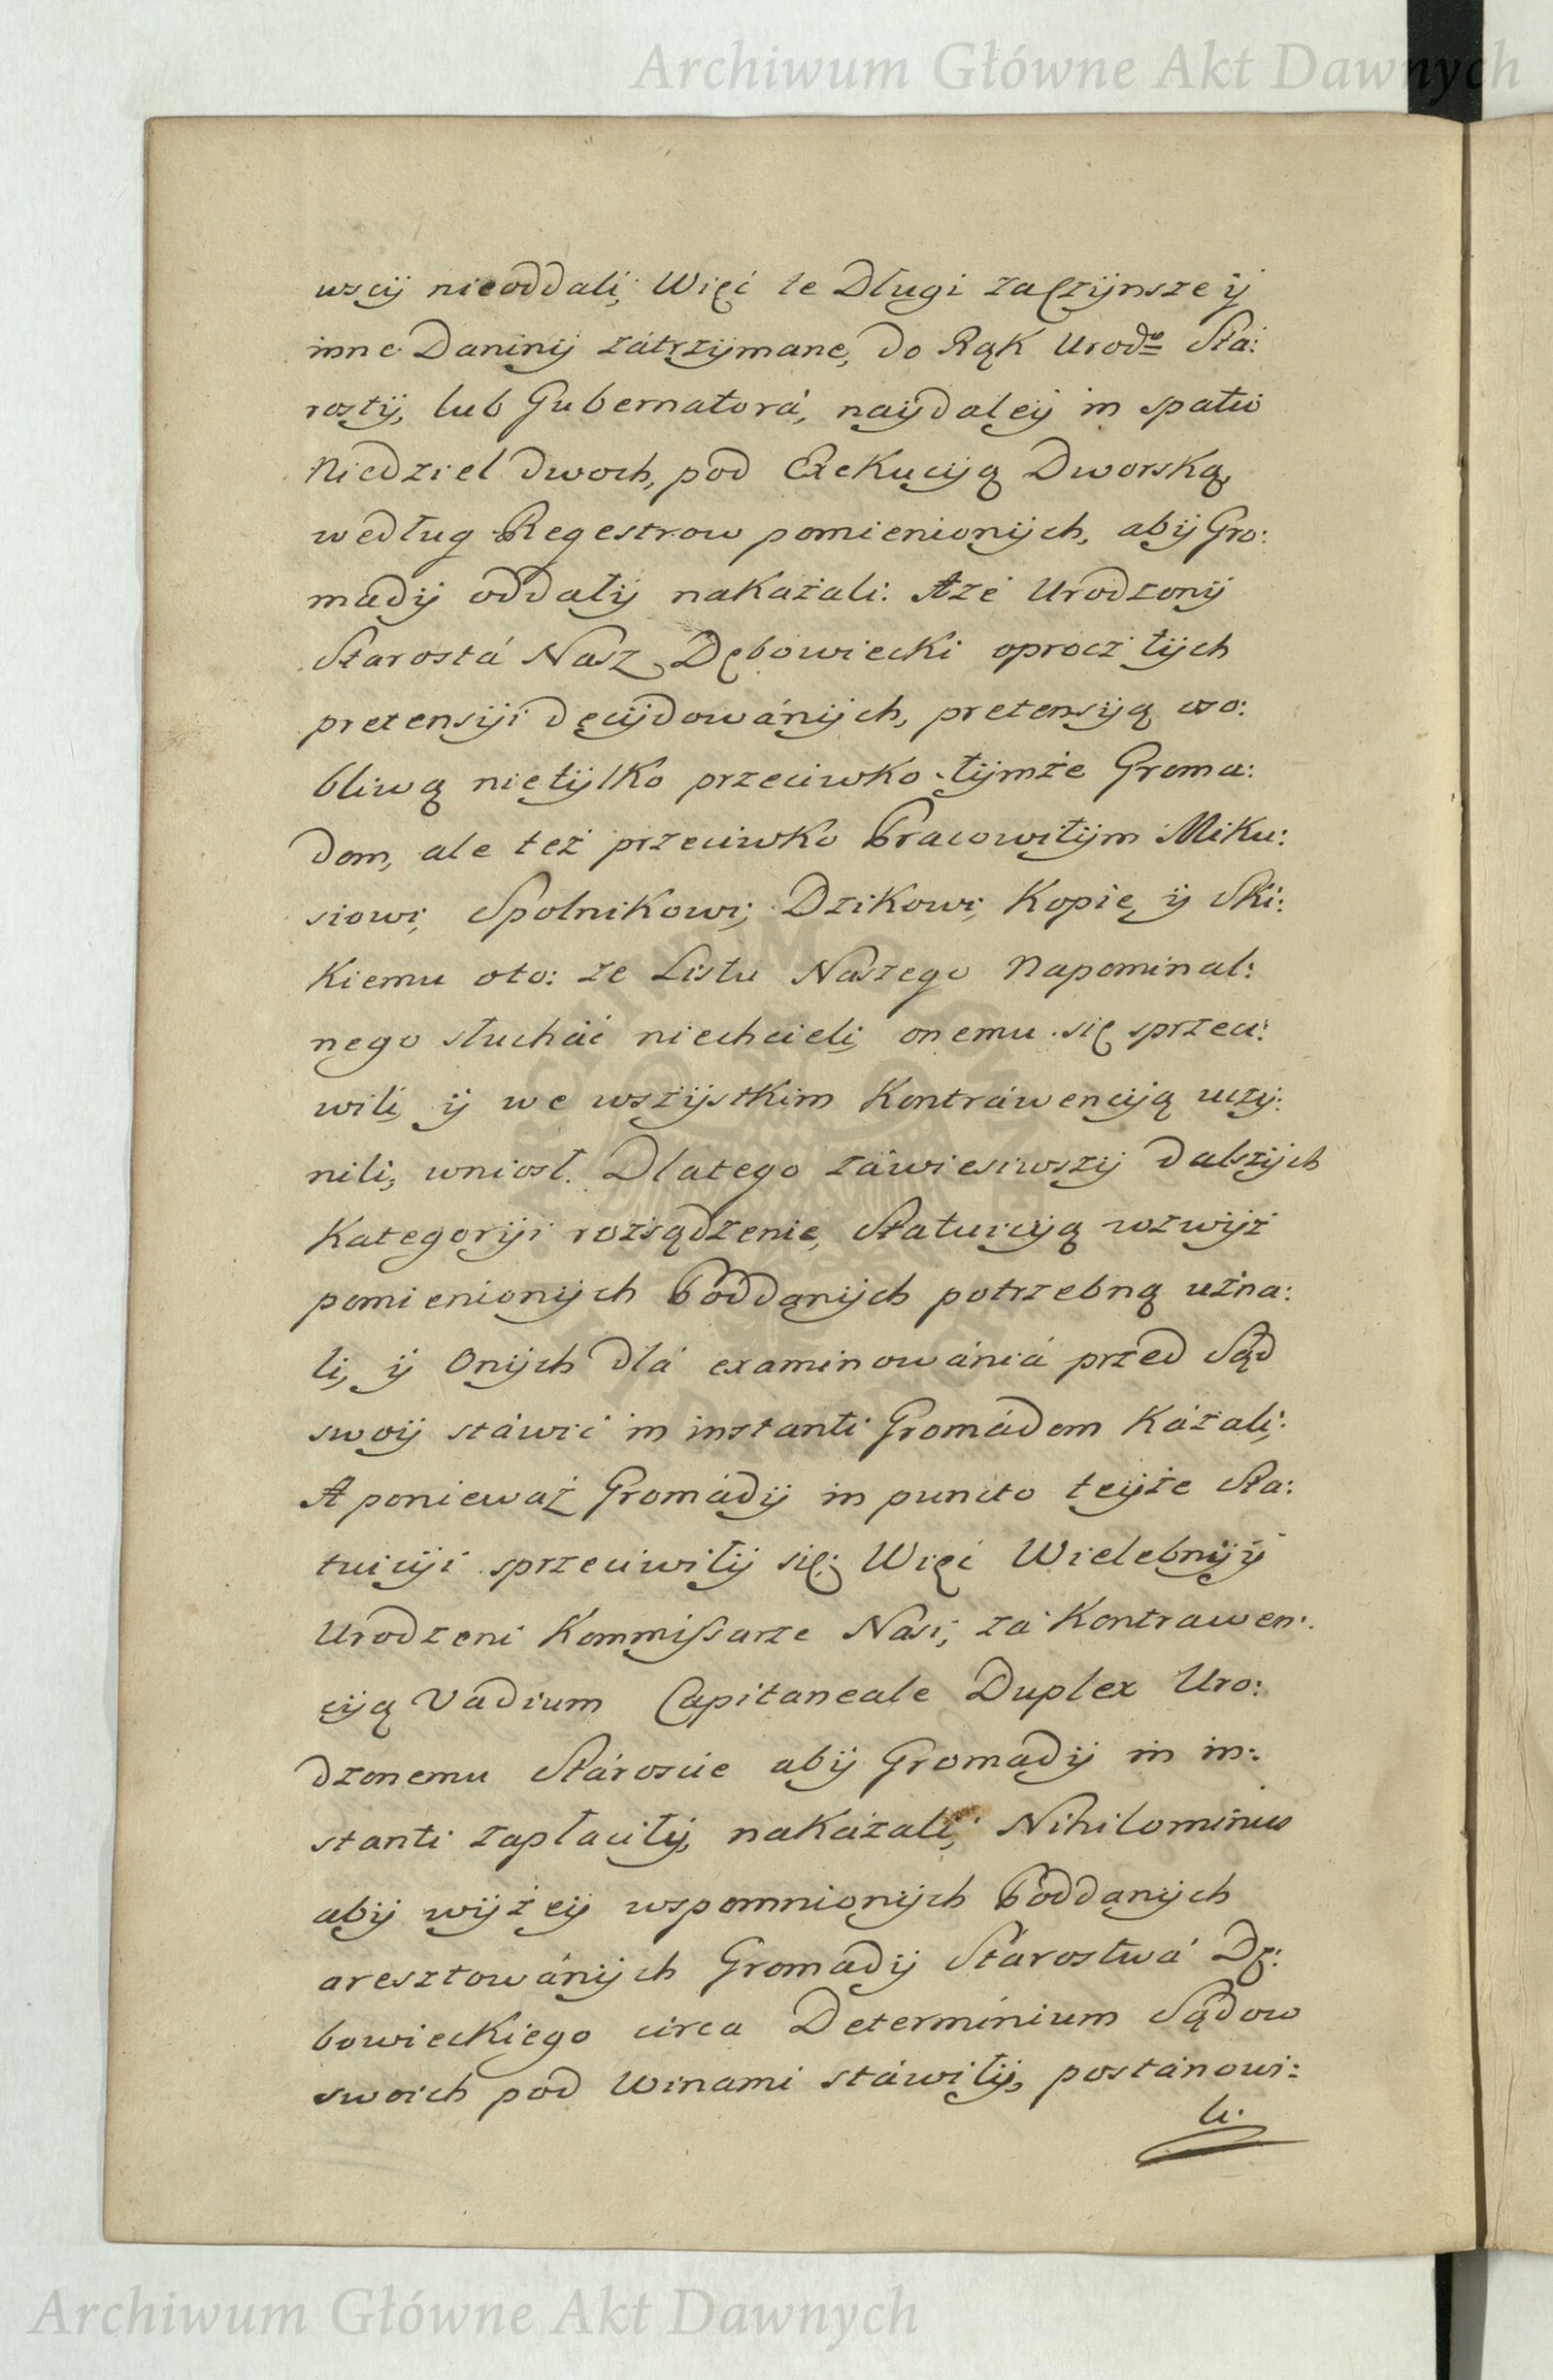 Archiwum Główne Akt Dawnych
wscÿ nieoddali, Więć te Długi zaczÿnsze ÿ
inne Daninÿ zátrzÿmane, do Rąk Urodº Stá:
rostÿ, lub Gubernatorá, naÿdaleÿ in spatio
Niedziel dwoch, pod Exekucÿą Dworską,
według Regestrow pomienionÿch, abÿ Gro:
madÿ oddałÿ nakazali: Aże Urodzonÿ
Starostá Nasz Dębowiecki oprocz tÿch
pretensÿi decÿdowánÿch, pretensÿą oso:
bliwą nietÿlko przeciwko tÿmże Groma:
dom, ale też przeciwko Pracowitÿm Miku:
siowi, Spolnikowi, Dzikowi, Kopie, ÿ Ski:
kiemu oto: że Listu Naszego Napominal:
nego słucháć niechcieli, onemu się sprzeci:
wili, ÿ we wszÿstkim Kontráwencÿą uczÿ:
nili, wniosł. Dlatego záwiesiwszÿ dalszÿch
Kategorÿi rozsądzenie, Statuicÿą wzwÿż
pomienionÿch Poddanÿch potrzebną uzna:
li, ÿ Onÿch dlá examinowániá przed Sąd
swoÿ stáwić in instanti Gromádom Kázali;
A ponieważ Gromádÿ in puncto teÿże Sta:
tuicÿi sprzeciwiłÿ się; Więć Wielebni ÿ
Urodzeni Kommissarze Nasi, zá Kontrawen:
cÿą Vadium Capitaneale Duplex Uro:
dzonemu Stároście abÿ Gromadÿ in in:
stanti zapłaciłÿ, nakázali; Nihilominus
abÿ wÿżeÿ wspomnionÿch Poddanÿch
aresztowánÿch Gromadÿ Stárostwá Dę:
bowieckiego circa Determinium Sądow
swoich pod Winami stáwiłÿ, postánowi:
li.
Archiwum Główne Akt Dawnych